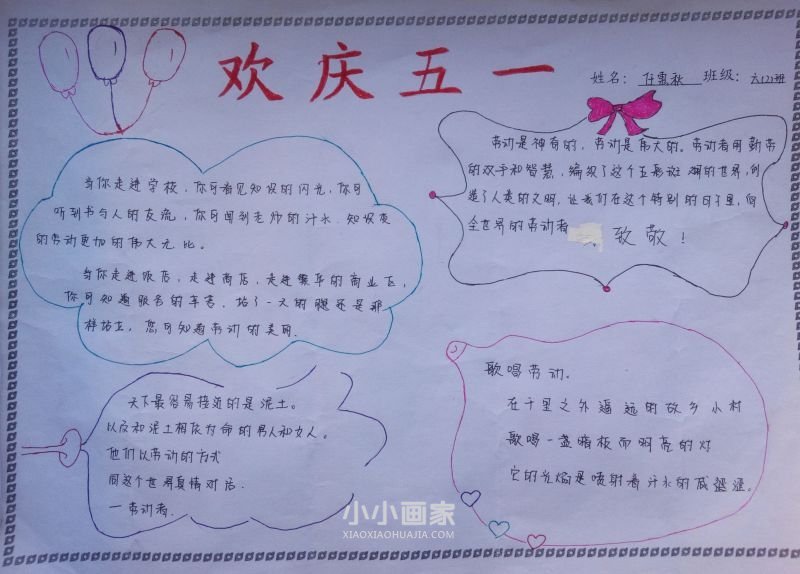 欢庆五一
姓名：任惠秋 班级：六(2)班
劳动是神奇的，劳动是伟大的。劳动者用勤劳
的双手和智慧，编织了这个五彩斑斓的世界，创
造了人类的文明。让我们在这个特别的日子里，向
全世界的劳动者 致敬！
当你走进学校，你可看见知识的闪光，你可
听到书与人的交流，你可闻到老师的汗水。知识使
的劳动更加的伟大无比。
当你走进饭店，走进商店，走进繁华的商业区，
你可知道服务的辛苦。站了一天的腿还是那
样站立，您可知道劳动的美丽.
天下最容易接近的是泥土。
以及和泥土相依为命的男人和女人。
他们以劳动的方式
同这个世界真情对话
一劳动者.
歌唱劳动。
在千里之外遥远的故乡小村
歌唱一盏暗板而明亮的灯
它的光焰是喷射着汗水的咸涩涩。
小小画家
XIAOXIAOHUAJIA.COM